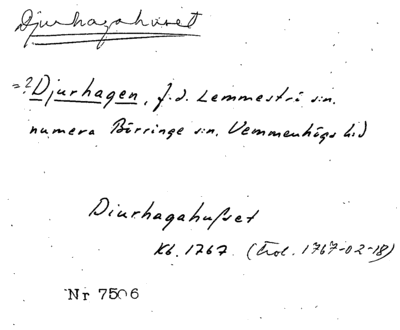 Djurhagahuset
=? Djurhagen, f.d. Lemmeströ s:n.
numera Börringe s:n, Vemmenhögs hd
Diurhagahusset
Kb. 1767. (Trol. 1767-02-18)
Nr 7506